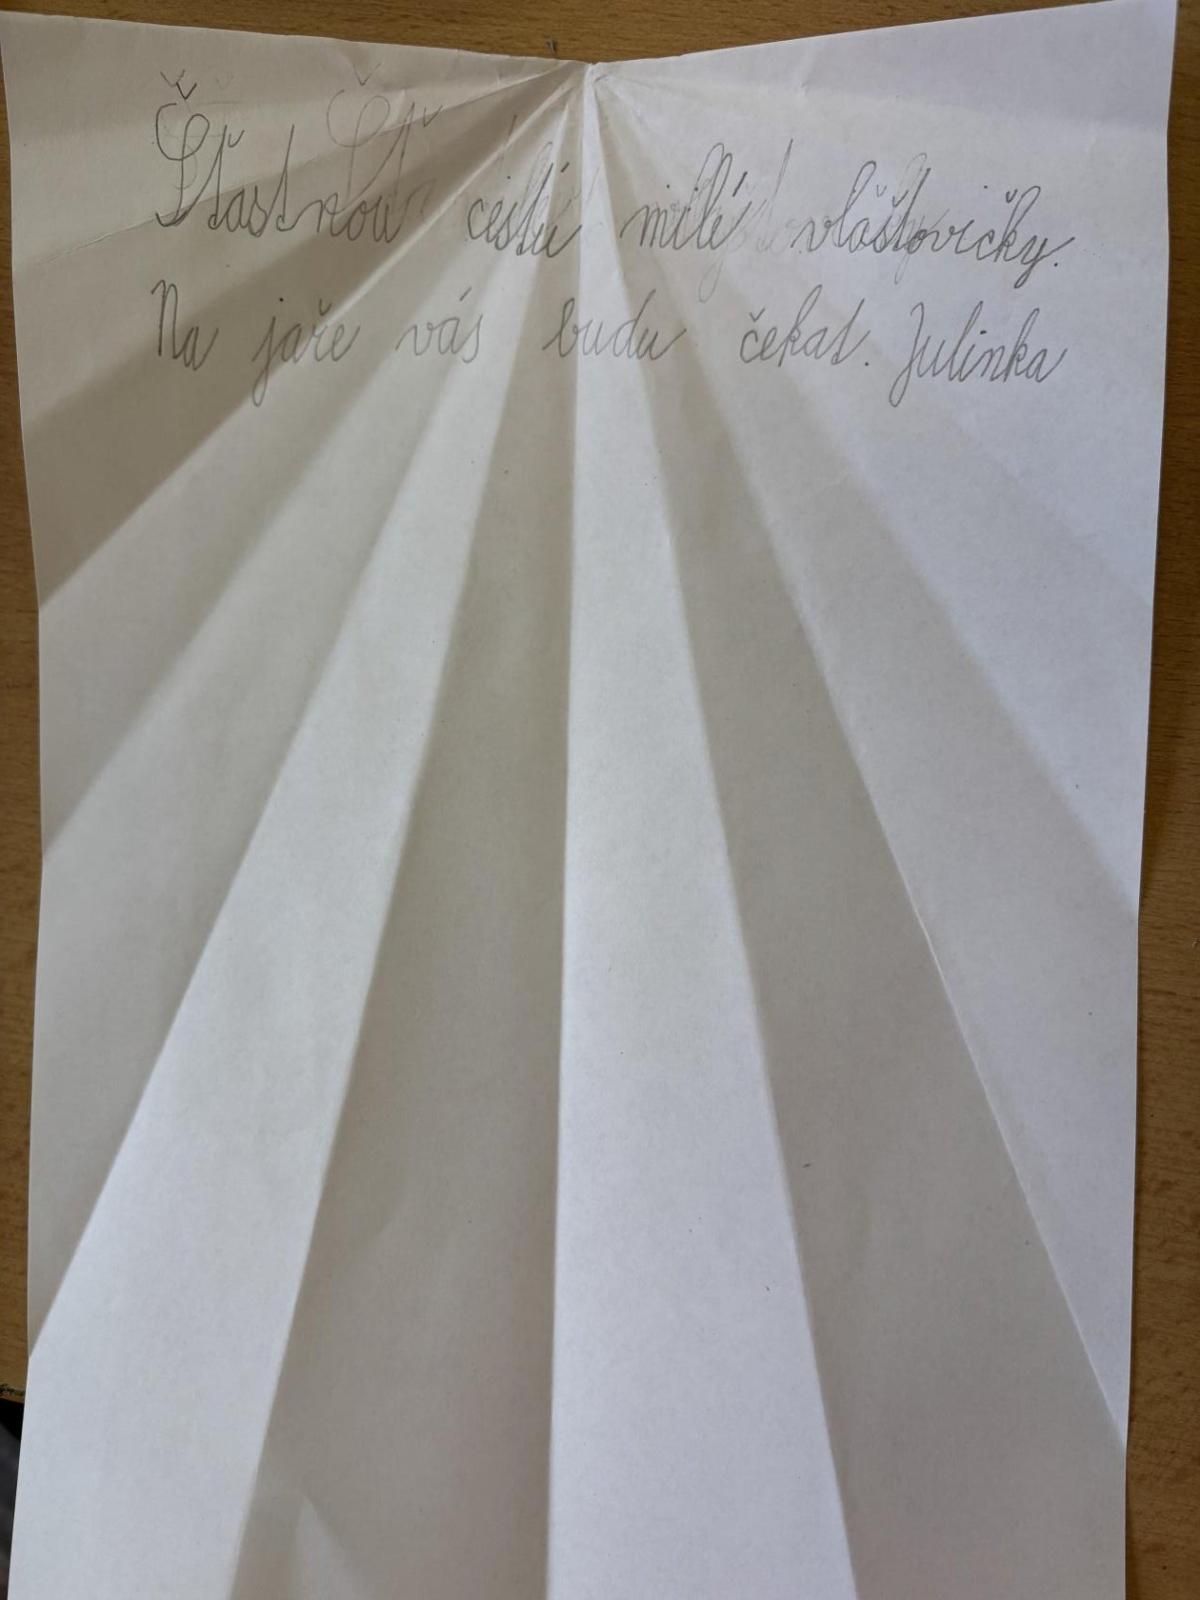 Šťastnou cestu milé vlaštovičky.
Na jaře vás budu čekat. Julinka